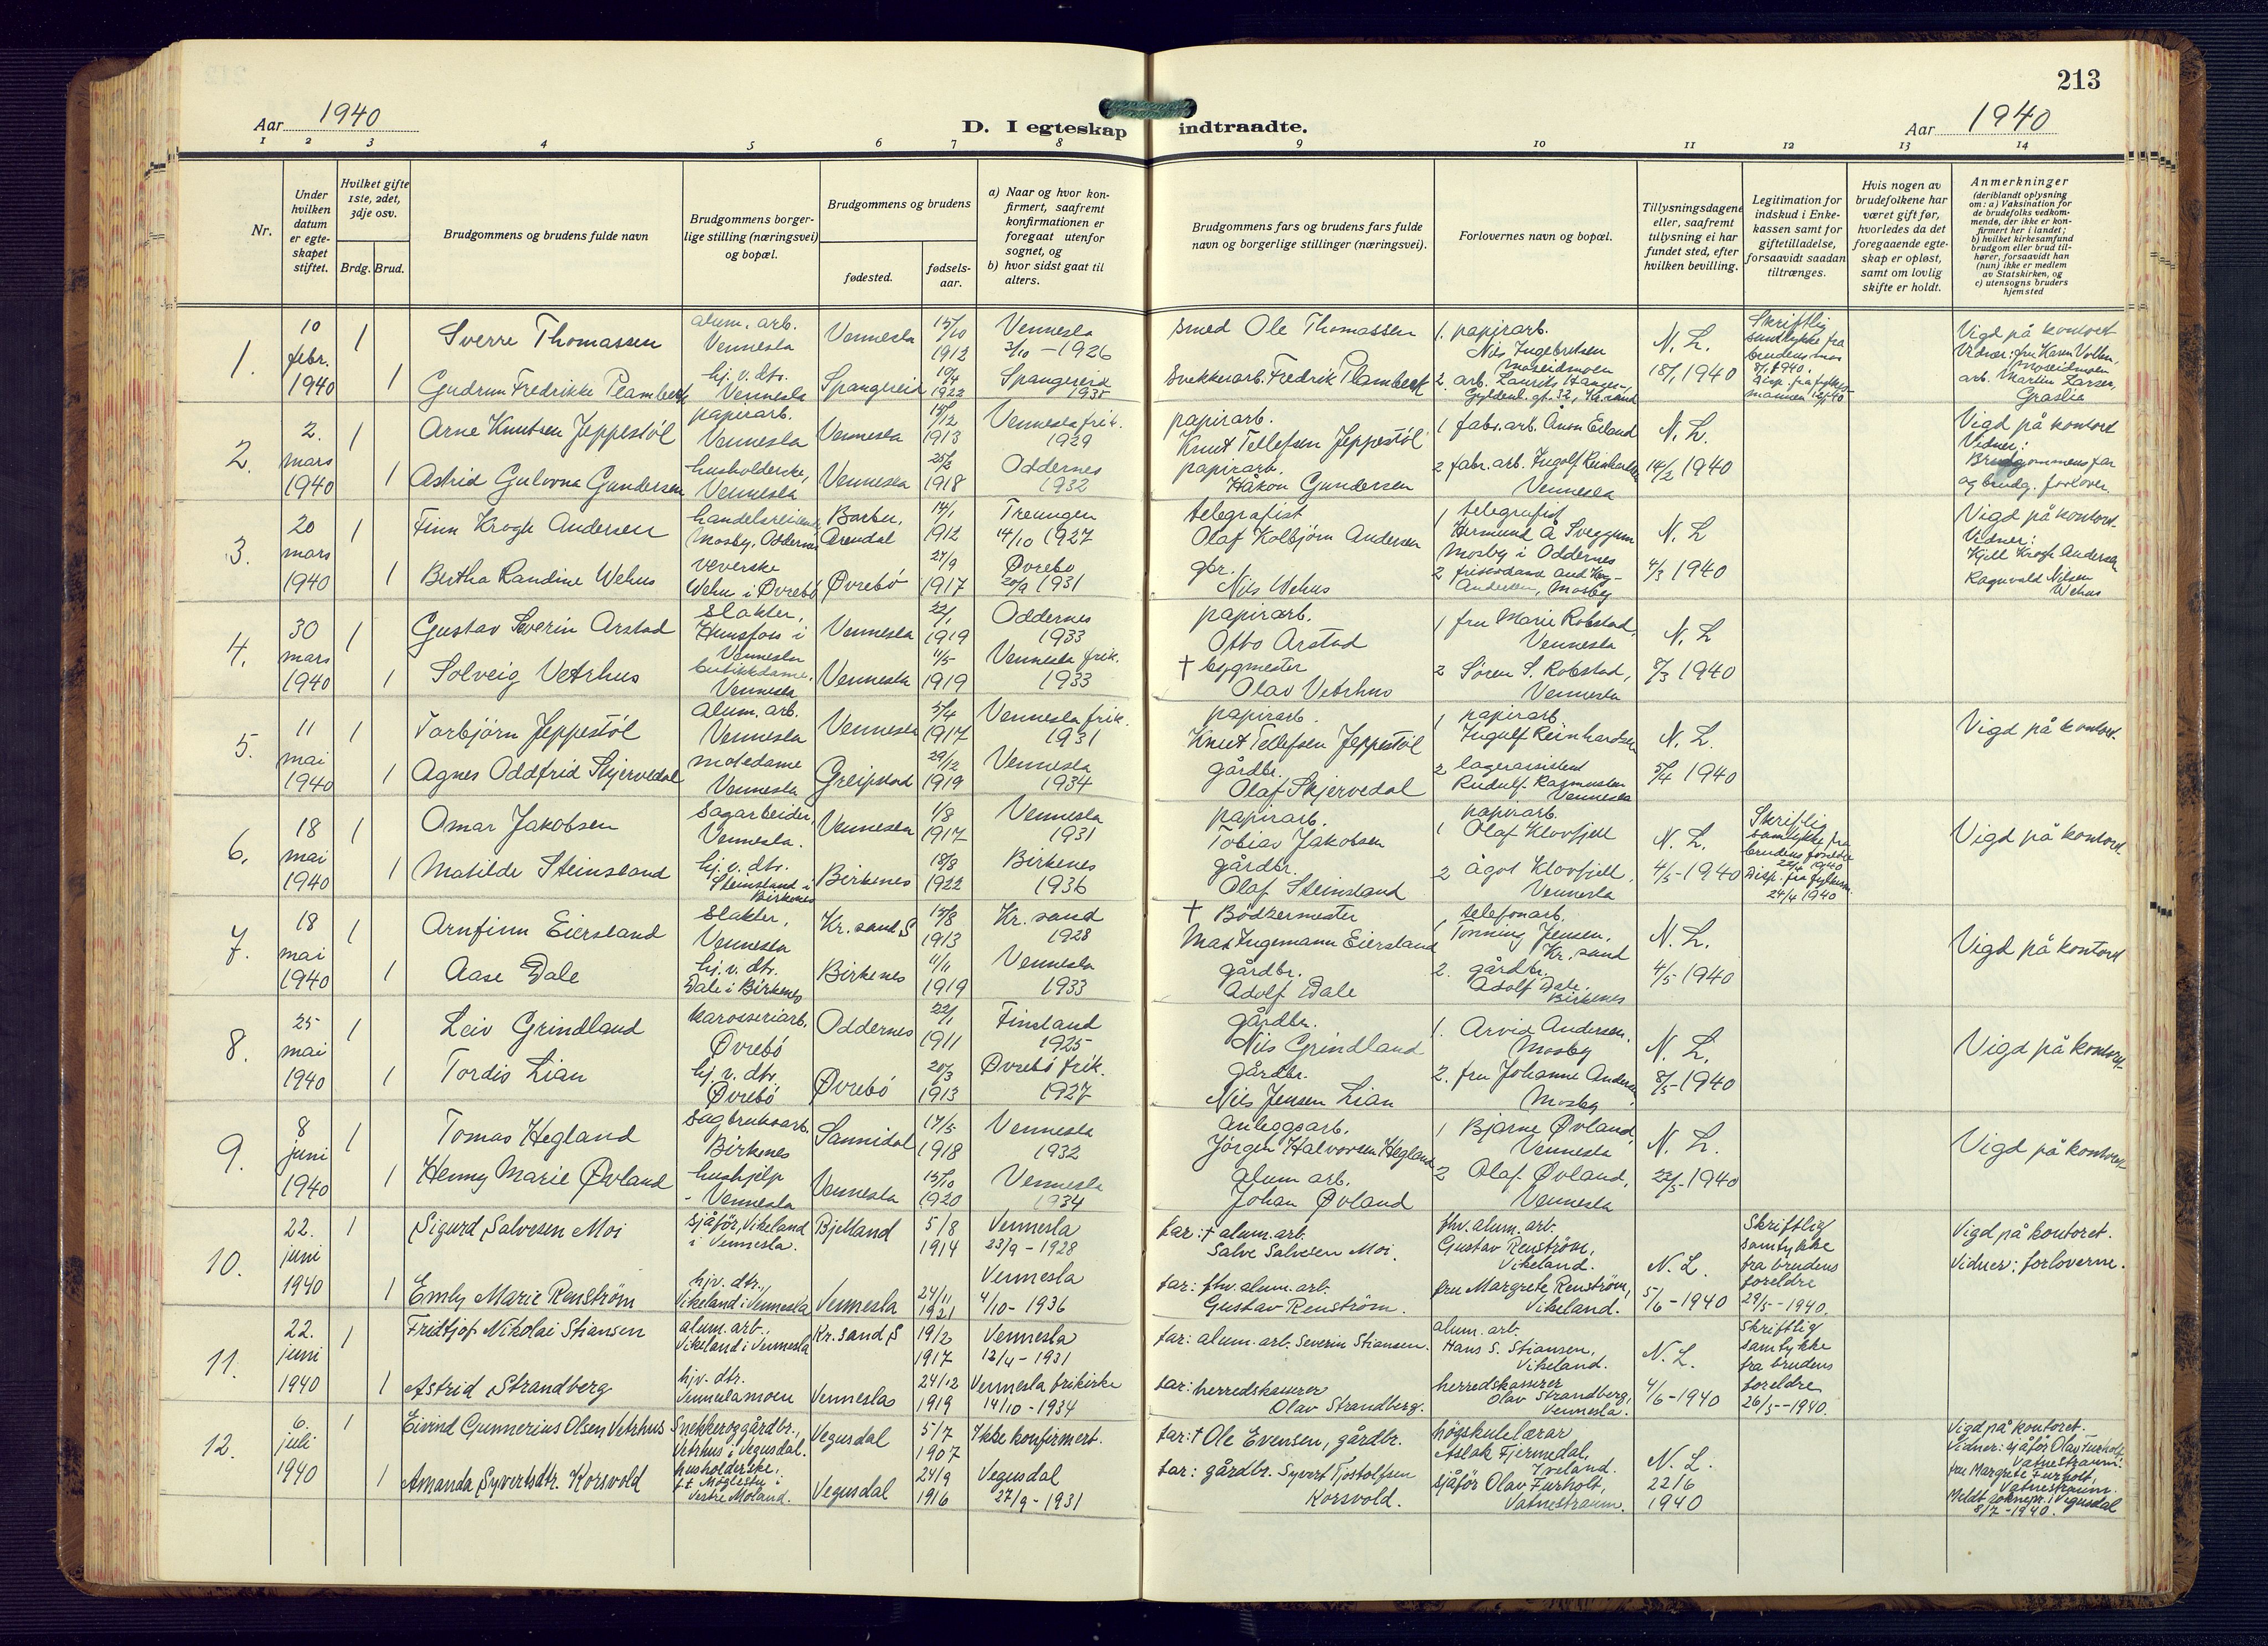 213
Aar 1940
D. I egteskap indtraadte.
Aar 1940
1 2 3 4 5 6 7 8 9 10 11 12 13 14
Nr.
Under hvilken datum er egte-skapet stiftet.
Hvilket gifte 1ste, 2det, 3dje osv.
Brdg. Brud.
Brudgommens og brudens fulde navn
Brudgommens borger-lige stilling (næringsvei) og bopæl.
Brudgommens og brudens
fødested.
fødsels-aar.
a) Naar og hvor kon-firmert, saafremt konfirmationen er foregaat utenfor sognet, og
b) hvor sidst gaat til alters.
Brudgommens fars og brudens fars fulde navn og borgerlige stillinger (næringsvei).
Forlovernes navn og bopæl.
Tillysningsdagene eller, saafremt tillysning ei har fundet sted, efter hvilken bevilling.
Legitimation for indskud i Enke-kassen samt for giftetilladelse, forsaavidt saadan tiltrænges.
Hvis nogen av brudefolkene har været gift før, hvorledes da det foregaaende egte-skap er opløst, samt om lovlig skifte er holdt.
Anmerkninger
(deriblandt oplysning om: a) Vaksination for de brudefolks vedkom-mende, der ikke er kon-firmert her i landet; b) hvilket kirkesamfund brudgom eller brud til-hører, forsaavidt han (hun) ikke er medlem av Statskirken, og c) utensogns bruders hjemsted
1. 10 febr. 1940
1 Sverre Thomassen alum. arb. Vennesla Vennesla 15/10 1912 Vennesla 3/10 - 1926
smed Ole Thomassen 1. papirarb. Nils Ingebretsen Moseidmoen
1 Gudrun Fredrikke Plambeck hj. v. dtr. Vennesla Spangereid 10/4 1922 Spangereid 1935
snekkerarb. Fredrik Plambeck 2. arb. Laurits Haugen, Gyldenl. gt. 32, Kr.sand
N. L. 18/1 1940
Skriftlig samtykke fra brudens 8/1 1940. Disp. fra fylkes-mannen 12/1 40
Vigd på kontoret Vidner: fru Karen Vollen, Moseidmoen arb. Martin Larsen, Graslia
2. 2. mars 1940
1 Arne Knutsen Jeppestöl papirarb. Vennesla Vennesla 15/12 1913 Vennesla frik. 1929
papirarb. Knut Tellefsen Jeppestöl 1 fabr. arb. Eiland
1 Astrid Gulovna Gundersen husholderske, Vennesla Vennesla 25/2 1918 Oddernes 1932
papirarb. Håkon Gundersen 2 fabr. arb. Ingolf Reinhardsen Vennesla
N. L. 14/2 1940
Vigd på kontoret Vidner: Brudgommens far og brudg. forlover.
3. 20 mars 1940
1 Finn Krogh Andersen handelsreisende, Mosby, Oddernes Barbu, Arendal 14/1 1912 Treungen 14/10 1927
telegrafist Olaf Kolbjørn Andersen 1 telegrafist Hermund Å Sveggum Mosby i Oddernes
1 Bertha Randine Wehus veverske Wehu i Øvrebö Øvrebö 27/9 1917 Øvrebö 20/9 1931
gbr. Nils Wehus 2 Andersen, Mosby
N. L 4/3 1940
Vigd på kontoret Vidner: Kjell Krogh Andersen Ragnvald Nilsen Wehus
4. 30 mars 1940
1 Gustav Severin Arstad slakter, Hunsfoss i Vennesla Vennesla 22/1 1919 Oddernes 1933
papirarb. Otto Arstad 1 fru Marie Robstad, Vennesla
1 Solveig Vetrhus butikkdame, Vennesla Vennesla 11/5 1919 Vennesla frik. 1933
† bygmester Olav Vetrhus 2 Søren S. Robstad, Vennesla
N. L 8/3 1940
5. 11 mai 1940
1 Torbjörn Jeppestöl alum. arb. Vennesla Vennesla 5/4 1917 Vennesla frik. 1931
papirarb. Knut Tellefsen Jeppestöl 1 papirarb. Ingolf Reinhardsen
1 Agnes Oddfrid Skjervedal motedame Vennesla Greipstad 29/12 1919 Vennesla 1934
gårdbr. Olaf Skjervedal 2 lagerassistent Rudolf Rasmussen Vennesla
N. L. 5/4 1940
Vigd på kontoret
6. 18 mai 1940
1 Omar Jakobsen Sagarbeider, Vennesla. Vennesla 1/8 1917 Vennesla 1931
papirarb. Tobias Jakobsen papirarb. 1 Olaf Klovfjell
1 Matilde Steinsland hj. v. dtr. Steinsland i Birkenes Birkenes 18/8 1922 Birkenes 1936
gårdbr. Olaf Steinsland 2 Ågot Klovfjell, Vennesla
N. L. 4/5-1940
Skriftlig samtykke fra brudens foreldre 1940 Disp. fra fylkesm. 24/4 1940
Vigd på kontoret
7. 18 mai 1940
1 Arnfinn Eiersland Slakter, Vennesla Kr. sand S 15/8 1913 Kr. sand 1928
† Bödkermester Max Ingemann Eiersland telefonarb. 1 Tönning Jensen, Kr. sand
1 Aase Dale hj. v. dtr. Dale i Birkenes Birkenes 11/11 1919 Vennesla 1933
gårdbr. Adolf Dale 2. gårdbr. Adolf Dale, Birkenes
N. L. 4/5 1940
Vigd på kontoret
8. 25 mai 1940
1 Leiv Grindland karosseriarb. Øvrebö Oddernes 22/1 1911 Finsland 1925
gårdbr. Nils Grindland 1. Arvid Andersen, Mosby
1 Tordis Lian hj. v. dtr Øvrebö Øvrebö 20/3 1913 Øvrebö frik. 1927
gårdbr. Nils Jensen Lian 2. fru Johanne Andersen, Mosby
N. L. 8/5-1940
Vigd på kontoret
9. 8 juni 1940
1 Tomas Hegland sagbruksarb. Birkenes Sannidal 17/5 1918 Vennesla 1932
anleggsarb. Jörgen Halvorsen Hegland 1 Bjarne Øvland, Vennesla
1 Henny Marie Øvland hushjelp - Vennesla Vennesla 15/10 1920 Vennesla 1934
alum arb. Johan Øvland 2 Olaf Øvland, Vennesla
N. L. 22/5-1940
Vigd på kontoret
10. 22. juni 1940
1 Sigurd Salvesen Moi sjåför, Vikeland i Vennesla. Bjelland 5/8 1914 Vennesla 23/9 - 1928
far: † alum. arb. Salve Salvesen Moi. fhv. alum. arb. Gustav Renström, Vikeland.
1 Emly Marie Renström hjv. dtr., Vikeland i Vennesla Vennesla 24/11 1921 Vennesla 4/10 - 1936
far: fhv. alum. arb. Gustav Renström. fru Margrete Renström, Vikeland.
N. L. 5/6 - 1940
Skriftlig samtykke fra brudens foreldre 29/5 - 1940.
Vigd på kontoret. Vidner: forloverne.
11. 22. juni 1940
1 Fridtjof Nikolai Stiansen alum. arb., Vikeland i Vennesla Kr. sand S 19/2 1917 Vennesla 12/4 - 1931
far: alum. arb. Severin Stiansen. alum. arb. Hans S. Stiansen, Vikeland.
1 Astrid Strandberg hjv. dtr. Venneslamoen Vennesla 24/12 1919 Vennesla frikirke 14/10 - 1934
far: herredskasserer Olav Strandberg. herredskasserer Olav Strandberg, Vennesla.
N. L. 4/6-1940
Skriftlig samtykke fra brudens foreldre 26/5 - 1940.
12. 6. juli 1940
1 Eivind Gunnerius Olsen Vetrhus Snekker og gårdbr., Vetrhus i Vegusdal. Vegusdal 5/7 1907 Ikke konfirmert.
far: † Ole Evensen, gårdbr. högskulelærar Aslak Fjermedal, Iveland.
1 Amanda Syvertsdtr. Korsvold husholderske, f.t. Möglestu i Vestre Moland. Vegusdal 24/9 1916 Vegusdal 27/9 - 1931
far: gårdbr. Syvert Tjostolfsen Korsvold. sjåför Olav Furholt, Vatnestraum.
N. L. 22/6 1940
Vigd på kontoret. Vidner: sjåför Olav Furholt, Vatnestraum. fru Margrete Furholt, Vatnestraum. Meldt soknepr. i Vegusdal 8/7 - 1940.